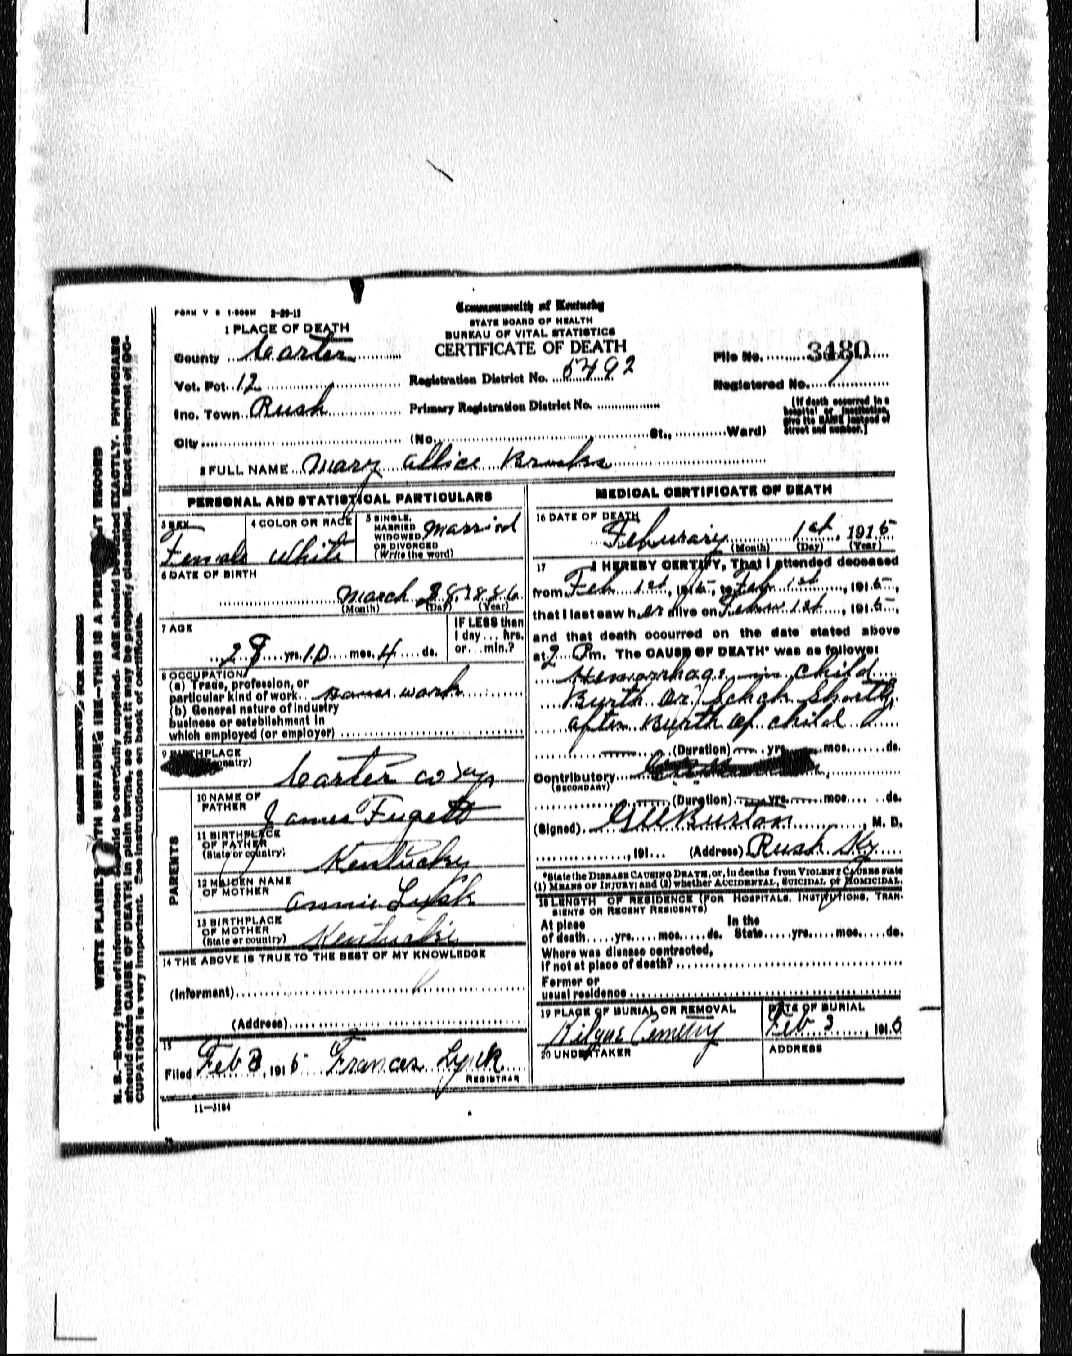 FORM V S 1-500M 2-29-12
Commonwealth of Kentucky
STATE BOARD OF HEALTH
BUREAU OF VITAL STATISTICS
CERTIFICATE OF DEATH
1 PLACE OF DEATH
County Carter
Vot. Pct. 12
Inc. Town Rush
City
Registration District No. 5492
Primary Registration District No.
(No. St., Ward)
File No. 3480
Registered No. 7
[If death occurred in a
hospital or institution,
give its NAME instead of
street and number.]
2 FULL NAME Mary Allice Brooks
PERSONAL AND STATISTICAL PARTICULARS
3 SEX
Female
4 COLOR OR RACE
White
5 SINGLE,
MARRIED
WIDOWED
OR DIVORCED
(Write the word)
Married
6 DATE OF BIRTH
March 28, 1886
(Month) (Day) (Year)
7 AGE
28 yrs. 10 mos. 4 ds.
IF LESS than
1 day... hrs.
or... min.?
8 OCCUPATION
(a) Trade, profession, or
particular kind of work House work
(b) General nature of industry
business or establishment in
which employed (or employer)
9 BIRTHPLACE
Carter co Ky
PARENTS
10 NAME OF
FATHER
James Fugett
11 BIRTHPLACE
OF FATHER
(State or country)
Kentucky
12 MAIDEN NAME
OF MOTHER
Annie
13 BIRTHPLACE
OF MOTHER
(State or country)
Kentucky
14 THE ABOVE IS TRUE TO THE BEST OF MY KNOWLEDGE
(Informant)
(Address)
15
Filed Feb 3, 1915 Frances Lynch
REGISTRAR
11—3184
MEDICAL CERTIFICATE OF DEATH
16 DATE OF DEATH
Feburary 1st, 1915
(Month) (Day) (Year)
17 I HEREBY CERTIFY, That I attended deceased
from Feb 1st, 1915, to Feb 1st, 1915,
that I last saw her alive on 1st, 1915,
and that death occurred on the date stated above
at 2 Pm. The CAUSE OF DEATH* was as follows:
Hemorrhage in child
Burth or Schok Shortly
after Burth of child
(Duration) yrs. mos. ds.
Contributory
(SECONDARY)
(Duration) yrs. mos. ds.
(Signed) Burton, M. D.
, 191... (Address) Rush Ky
*State the DISEASE CAUSING DEATH, or, in deaths from VIOLENT CAUSES state
(1) MEANS OF INJURY; and (2) whether ACCIDENTAL, SUICIDAL or HOMICIDAL.
18 LENGTH OF RESIDENCE (FOR HOSPITALS, INSTITUTIONS, TRAN-
SIENTS OR RECENT RESIDENTS)
At place In the
of death yrs. mos. ds. State yrs. mos. ds.
Where was disease contracted,
if not at place of death?
Former or
usual residence
19 PLACE OF BURIAL OR REMOVAL
Cemetry
DATE OF BURIAL
Feb 3, 1915
20 UNDERTAKER
ADDRESS
MARGIN RESERVED FOR BINDING
WRITE PLAINLY WITH UNFADING INK—THIS IS A PERMANENT RECORD
N. B.—Every item of information should be carefully supplied. AGE should be stated EXACTLY. PHYSICIANS
should state CAUSE OF DEATH in plain terms, so that it may be properly classified. Exact statement of OC-
CUPATION is very important. See instructions on back of certificate.